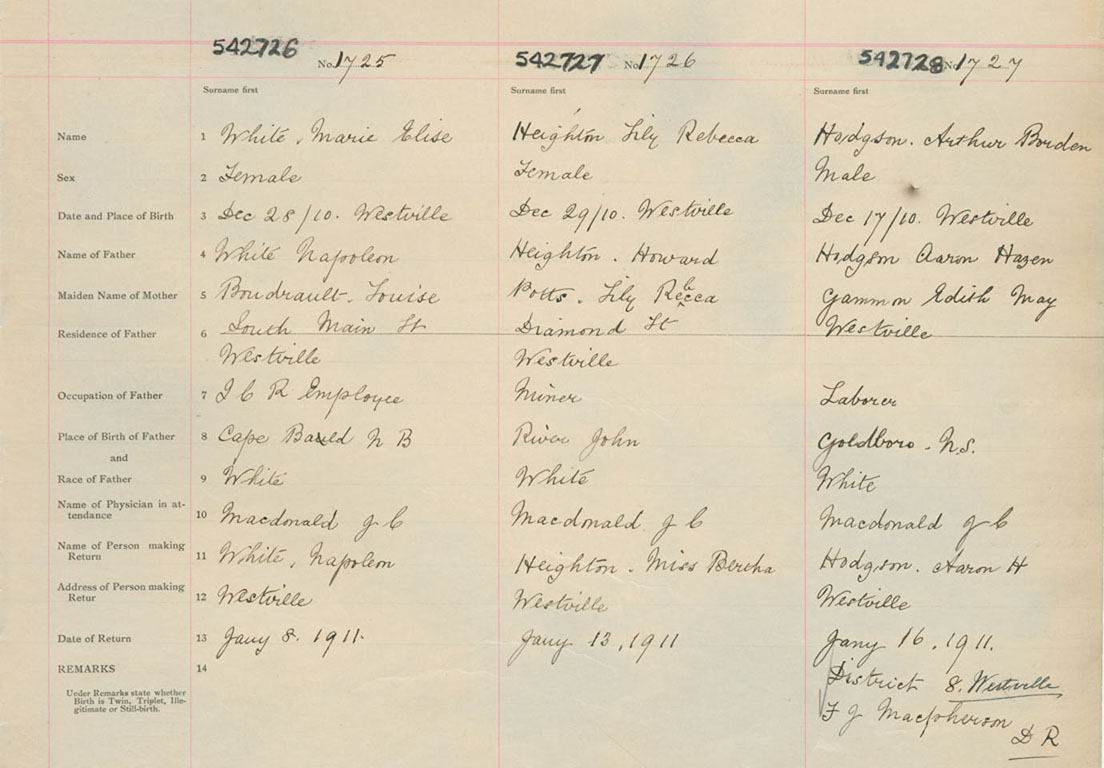 542726 No. 1725 542727 No. 1726 542728 No. 1727
Surname first Surname first Surname first
Name 1 White, Marie Elise Heighton Lily Rebecca Hodgson. Arthur Borden
Sex 2 Female Female Male
Date and Place of Birth 3 Dec 28/10. Westville Dec 29/10. Westville Dec 17/10. Westville
Name of Father 4 White Napoleon Heighton. Howard Hodgson Aaron Hazen
Maiden Name of Mother 5 Boudrault. Louise Potts. Lily Rebecca Gammon Edith May
Residence of Father 6 South Main St Diamond St Westville
Westville Westville
Occupation of Father 7 I C R Employee Miner Laborer
Place of Birth of Father 8 Cape Bauld N B River John Goldboro - N.S.
and
Race of Father 9 White White White
Name of Physician in at-
tendance 10 Macdonald J C Macdonald J C Macdonald J C
Name of Person making
Return 11 White, Napoleon Heighton. Miss Bertha Hodgson. Aaron H
Address of Person making
Retur 12 Westville Westville Westville
Date of Return 13 Jany 8. 1911. Jany 13, 1911 Jany 16, 1911.
REMARKS 14 District 8. Westville
Under Remarks state whether
Birth is Twin, Triplet, Ille-
gitimate or Still-birth.
F J Macpherson
D R